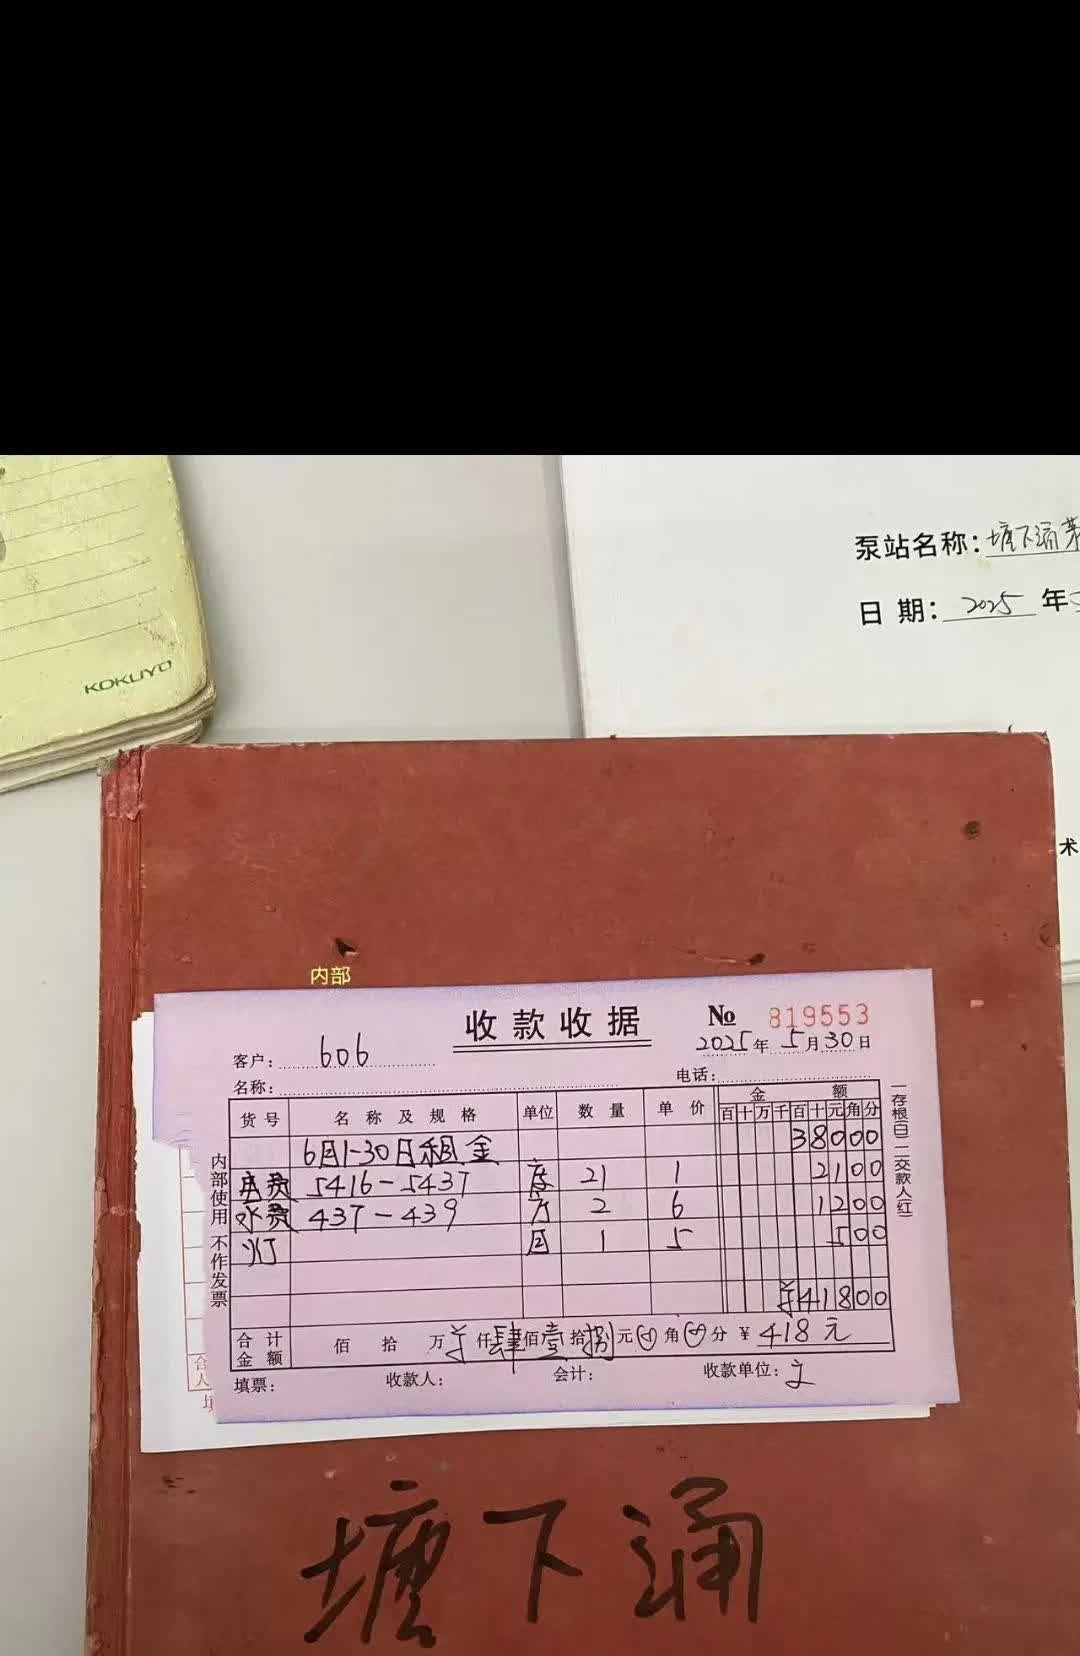 泵站名称：塘下涌茅
日 期： 2025 年5
KOKUYO
术
内部
收款收据
No 819553
2025年 5月30日
客户： 606
名称： 电话：
货号 名称及规格 单位 数量 单价 金额
百十万千百十元角分
6月1-30日租金 38000
电费 5416-5437 度 21 1 2100
水费 437-439 方 2 6 1200
灯 1 5 500
¥41800
合计金额 佰 拾 万 仟肆佰壹拾捌元 角 分 ¥ 418元
填票： 收款人： 会计： 收款单位：
内部使用 不作发票
一存根(白) 二交款人(红)
塘下涌